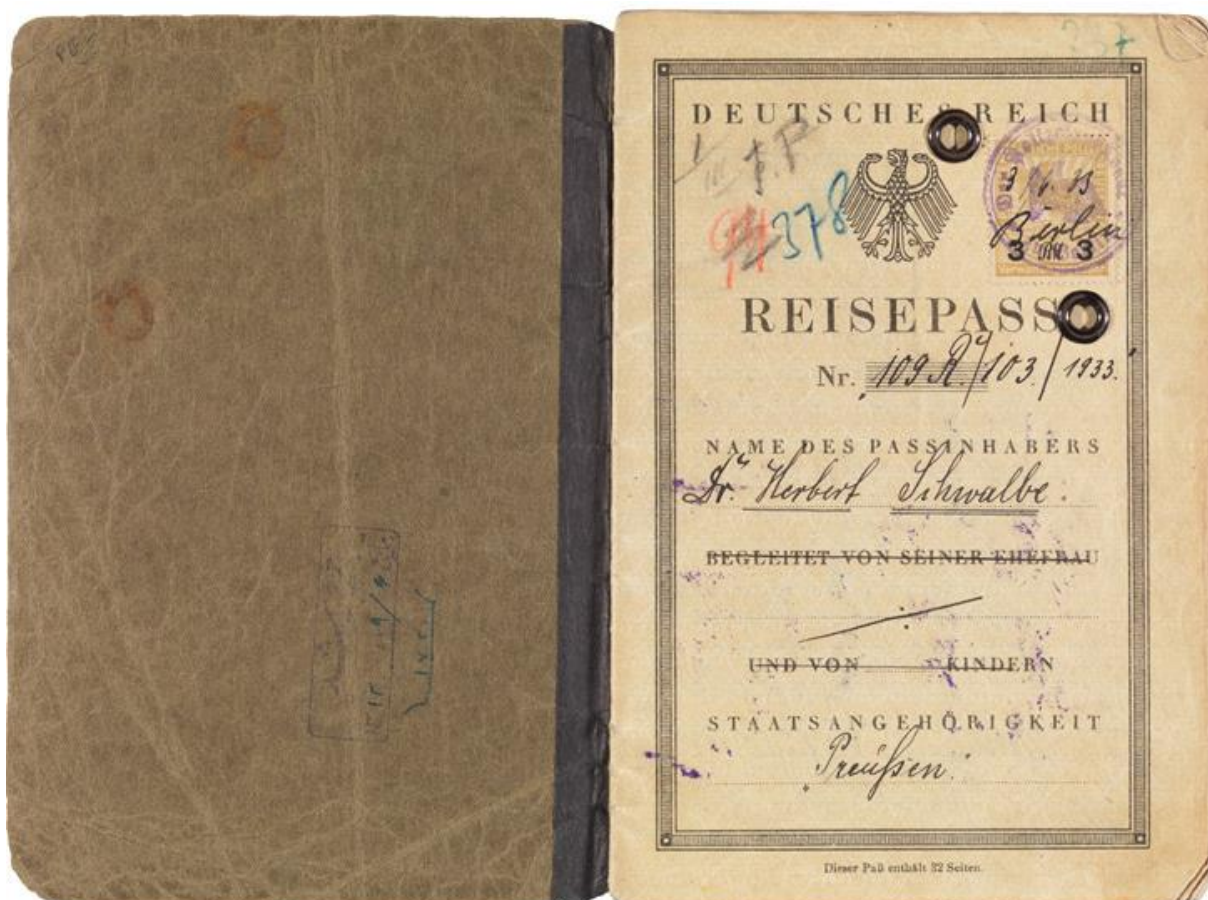 DEUTSCHES REICH
378
3 RM 3
Berlin
REISEPASS
Nr. 109 R./103/1933.
NAME DES PASSINHABERS
Dr. Herbert Schwalbe.
BEGLEITET VON SEINER EHEFRAU
UND VON KINDERN
STAATSANGEHÖRIGKEIT
Preußen.
Dieser Paß enthält 32 Seiten.